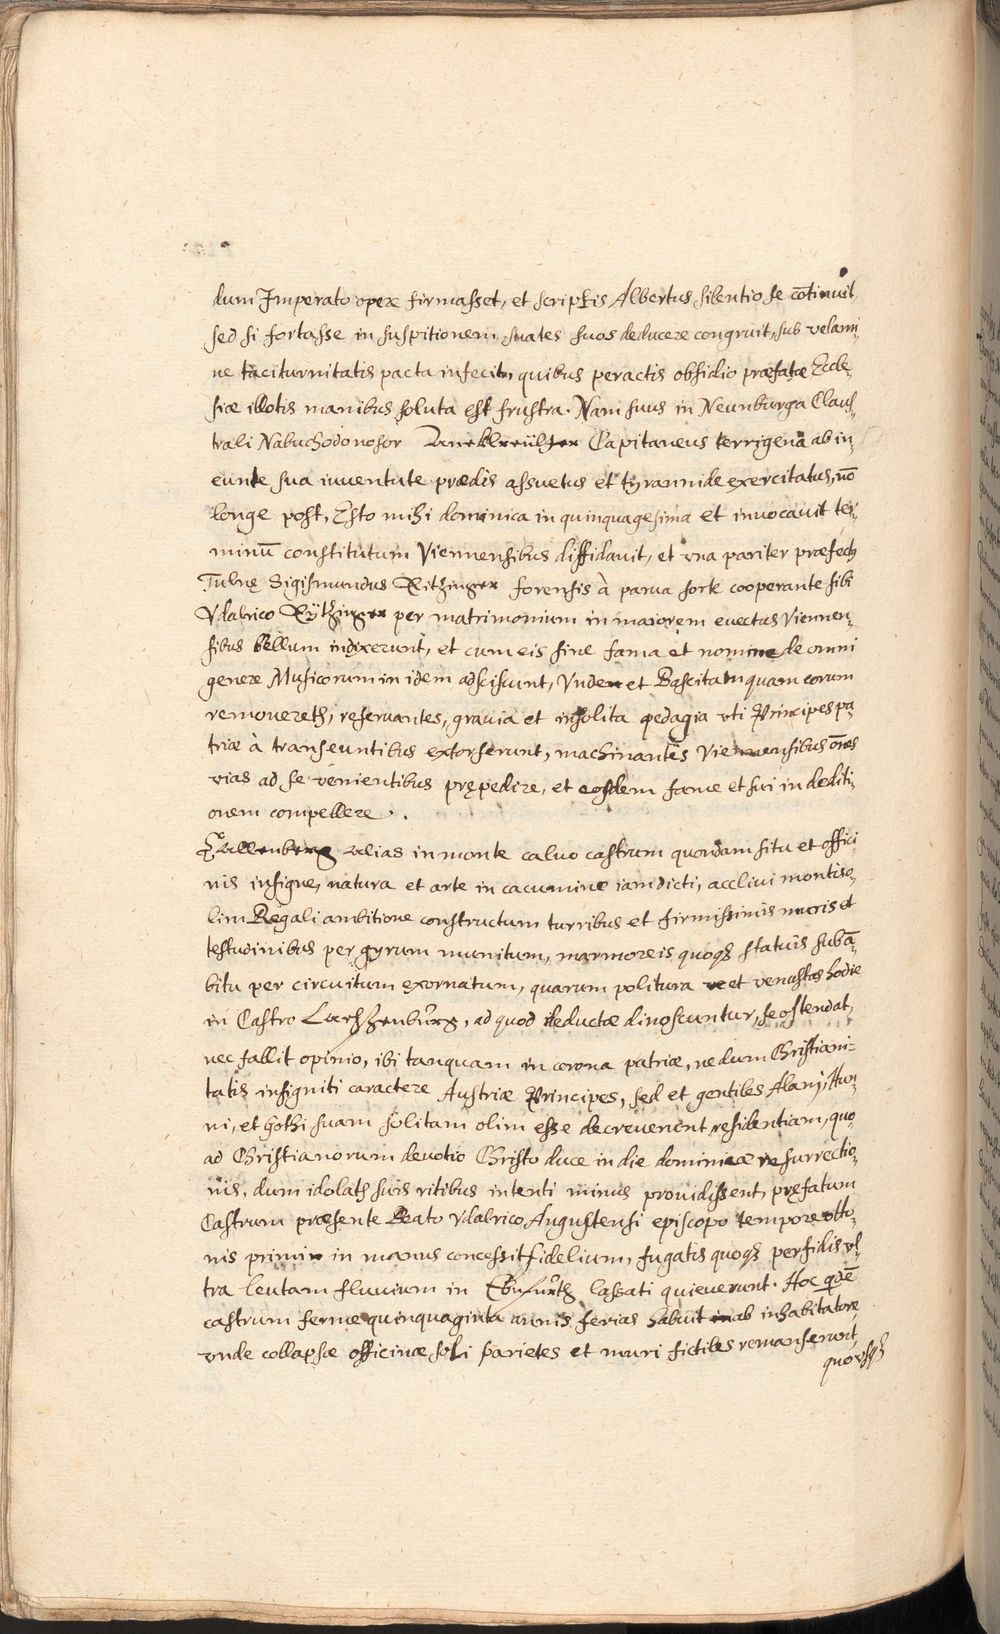 dum Imperato opere firmasset, et scriptis Albertus silentio se cōtinuit,
sed si fortasse in suspitionem suates suos deducere congruit, sub velami-
ne taciturnitatis pacta infecit, quibus peractis obsidio præfatæ Eccle-
siæ illotis manibus soluta est frustra. Nam suus in Neunburga Claus-
trali Nabuchodonosor Capitaneus terrigena ab in-
eunte sua iuventute prædis assuetus et tyrannide exercitatus, nō
longe post, Esto mihi dominica in quinquagesima et invocavit ter-
minū constitutum Viennensibus diffidavit, et vna pariter præfectꝰ
Tulnę Sigismundus Eitzinger forensis à parua sorte cooperante sibi
Vdalrico Eÿtzinger per matrimonium in maiorem euectus Viennen-
sibus bellum indixerunt, et cum eis sine fama et nomine de omni
genere Musicorum in idem adsciscunt, Vnde et Bascita quam eorum
removereth, reservantes, gravia et insolita pedagia vti Principes pa-
triæ à transeuntibus extorserunt, machinantes Viennensibus ōnes
vias ad se venientibus prępedire, et eosdem fame et sui in dediti-
onem compellere.
Kallenberg alias in monte caluo castrum quondam situ et offici-
nis insigne, natura et arte in cacumine iam dicti, acclivi montis o-
lim Regali ambitione constructum turribus et firmissimis muris et
testudinibus per gyrum munitum, marmoreis quoqꝫ statuis sub ā-
bitu per circuitum exornatum, quarum politura et venustas hodie
in Castro Lachsenburg, ad quod deductæ dinoscuntur, se ostendat,
nec fallit opinio, ibi tanquam in corona patriæ, nedum Christiani-
tatis insigniti caractere Austriæ Principes, sed et gentiles Alanj, Hun-
ni, et Gothi suam solitam olim esse decreverunt residentiam, quo-
ad Christianorum devotio Christo duce in die dominicæ resurrectio-
nis, dum idolatꝫ suis ritibus intenti minus providissent, pręfatum
Castrum præsente Beato Vdalrico Augustensi episcopo tempore Otto-
nis primi in manus concessit fidelium, fugatis quoqꝫ perfidis vl-
tra leutam fluvium in Ebnfurth lassati quieverunt. Hoc qdē
castrum ferme quinquaginta annis ferias habuit ab inhabitatore,
vnde collapsæ officinæ soli parietes et muri fictiles remanserunt,
quousqꝫ